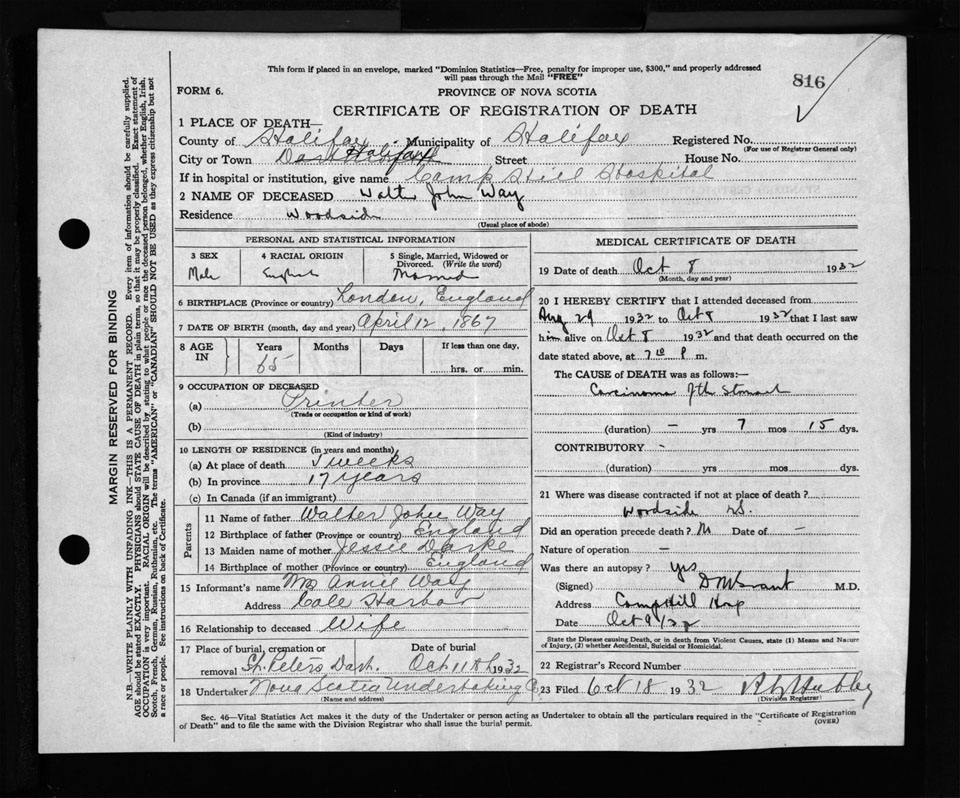 This form if placed in an envelope, marked "Dominion Statistics—Free, penalty for improper use, $300," and properly addressed
will pass through the Mail "FREE"
816
FORM 6.
PROVINCE OF NOVA SCOTIA
CERTIFICATE OF REGISTRATION OF DEATH
1 PLACE OF DEATH—
County of Halifax Municipality of Halifax Registered No.
(For use of Registrar General only)
City or Town Halifax Street House No.
If in hospital or institution, give name Camp Hill Hospital
2 NAME OF DECEASED Walter John Way
Residence Woodside
(Usual place of abode)
PERSONAL AND STATISTICAL INFORMATION
3 SEX 4 RACIAL ORIGIN 5 Single, Married, Widowed or
Divorced. (Write the word)
Male English Married
6 BIRTHPLACE (Province or country) London, England
7 DATE OF BIRTH (month, day and year) April 12, 1867
8 AGE IN Years Months Days If less than one day,
65 hrs. or min.
9 OCCUPATION OF DECEASED
(a) Printer
(Trade or occupation or kind of work)
(b)
(Kind of industry)
10 LENGTH OF RESIDENCE (in years and months)
(a) At place of death weeks
(b) In province 17 years
(c) In Canada (if an immigrant)
Parents
11 Name of father Walter John Way
12 Birthplace of father (Province or country) England
13 Maiden name of mother Jessie Darke
14 Birthplace of mother (Province or country) England
15 Informant's name Mrs Annie Way
Address Cole Harbor
16 Relationship to deceased Wife
17 Place of burial, cremation or removal St. Peters Dart. Date of burial Oct 11th 1932
18 Undertaker Nova Scotia Undertaking Co
(Name and address)
MEDICAL CERTIFICATE OF DEATH
19 Date of death Oct 8 1932
(Month, day and year)
20 I HEREBY CERTIFY that I attended deceased from
Aug 29 1932 to Oct 8 1932 that I last saw
him alive on Oct 8 1932 and that death occurred on the
date stated above, at 7 10 P m.
The CAUSE of DEATH was as follows:—
Carcinoma of the Stomach
(duration) — yrs 7 mos 15 dys.
CONTRIBUTORY -
(duration) yrs mos dys.
21 Where was disease contracted if not at place of death?
Woodside N.S.
Did an operation precede death? Date of —
Nature of operation —
Was there an autopsy? Yes
(Signed) M.D.
Address Camp Hill Hosp
Date Oct 9/32
State the Disease causing Death, or in death from Violent Causes, state (1) Means and Nature
of Injury, (2) whether Accidental, Suicidal or Homicidal.
22 Registrar's Record Number
23 Filed Oct 18 1932
(Division Registrar)
Sec. 46—Vital Statistics Act makes it the duty of the Undertaker or person acting as Undertaker to obtain all the particulars required in the "Certificate of Registration
of Death" and to file the same with the Division Registrar who shall issue the burial permit.
(OVER)
MARGIN RESERVED FOR BINDING
N.B.—WRITE PLAINLY WITH UNFADING INK—THIS IS A PERMANENT RECORD. Every item of information should be carefully supplied.
AGE should be stated EXACTLY. PHYSICIANS should STATE CAUSE OF DEATH in plain terms, so that it may be properly classified. Exact statement of
OCCUPATION is very important. RACIAL ORIGIN will be described by stating to what people or race the deceased person belonged, whether English, Irish,
Scotch, French, German, Russian, Ruthenian, etc. The terms "AMERICAN" or "CANADIAN" SHOULD NOT BE USED as they express citizenship but not
a race or people. See instructions on back of Certificate.